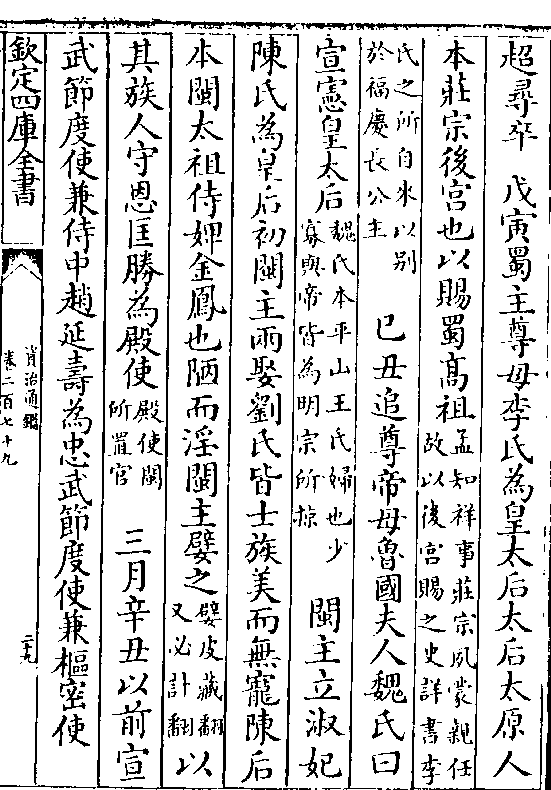 超尋卒　戊寅蜀主尊母李氏為皇太后太后太原人
本莊宗後宮也以賜蜀髙祖孟知祥事莊宗夙蒙親任故以後宮賜之史詳書李
氏之所自來以别於福慶長公主　己丑追尊帝母魯國夫人魏氏曰
宣憲皇太后魏氏本平山王氏婦也少寡與帝皆為明宗所掠　閩主立淑妃
陳氏為皇后初閩主兩娶劉氏皆士族美而無寵陳后
本閩太祖侍婢金鳳也陋而淫閩主嬖之嬖皮蔽翻又必計翻以
其族人守恩匡勝為殿使殿使閩所置官　三月辛丑以前宣
武節度使兼侍中趙延壽為忠武節度使兼樞密使
欽定四庫全書
資治通鑑
卷二百七十九
二十九